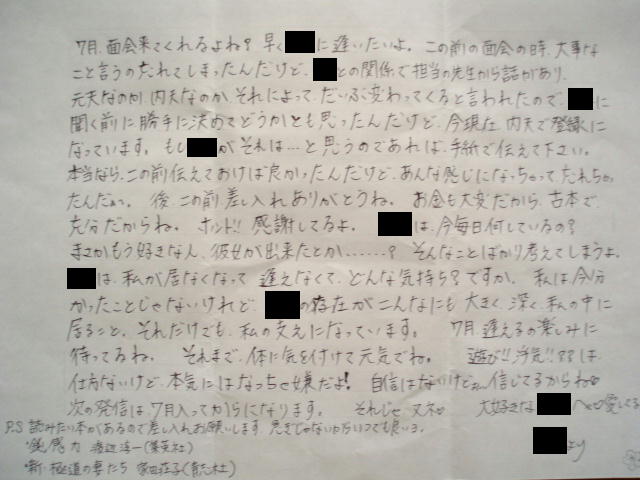 7月、面会来てくれるよね？早く に逢いたいよ。この前の面会の時、大事な
こと言うの忘れてしまったんだけど、 との関係で担当の先生から話があり、
元夫なのか、内夫なのか、それによって、だいぶ変わってくると言われたので、 に
聞く前に勝手に決めてどうかとも思ったんだけど、今現在、内夫で登録に
なっています。もし がそれは…と思うのであれば、手紙で伝えて下さい。
本当なら、この前伝えておけば良かったんだけど、あんな感じになっちゃって忘れちゃ
ったんだぁ。後、この前差し入れありがとうね。お金も大変だから、古本で、
充分だからね。ホント!!感謝してるよ。 は、今毎日何しているの？
まさかもう好きな人、彼女が出来たとか………？そんなことばかり考えてしまうよ。
は、私が居なくなって逢えなくて、どんな気持ち？ですか。私は今分
かったことじゃないけれど の存在がこんなにも大きく、深く、私の中に
居ること。それだけでも、私の支えになっています。7月逢えるの楽しみに
待ってるね。それまで、体に気を付けて元気でね。遊び!!浮気!!??は、
仕方ないけど、本気にはなっちゃ嫌だよ！自信はないけど 信じてるからね
次の発信は、7月入ってからになります。それじゃ又ネ 大好きな へ 愛してる
より
P.S 読みたい本があるので差し入れお願いします。急ぎじゃないからいつでも良いヨ。
・鈍感力 渡辺淳一(集英社)
・新・極道の妻たち 家田荘子(青志社)